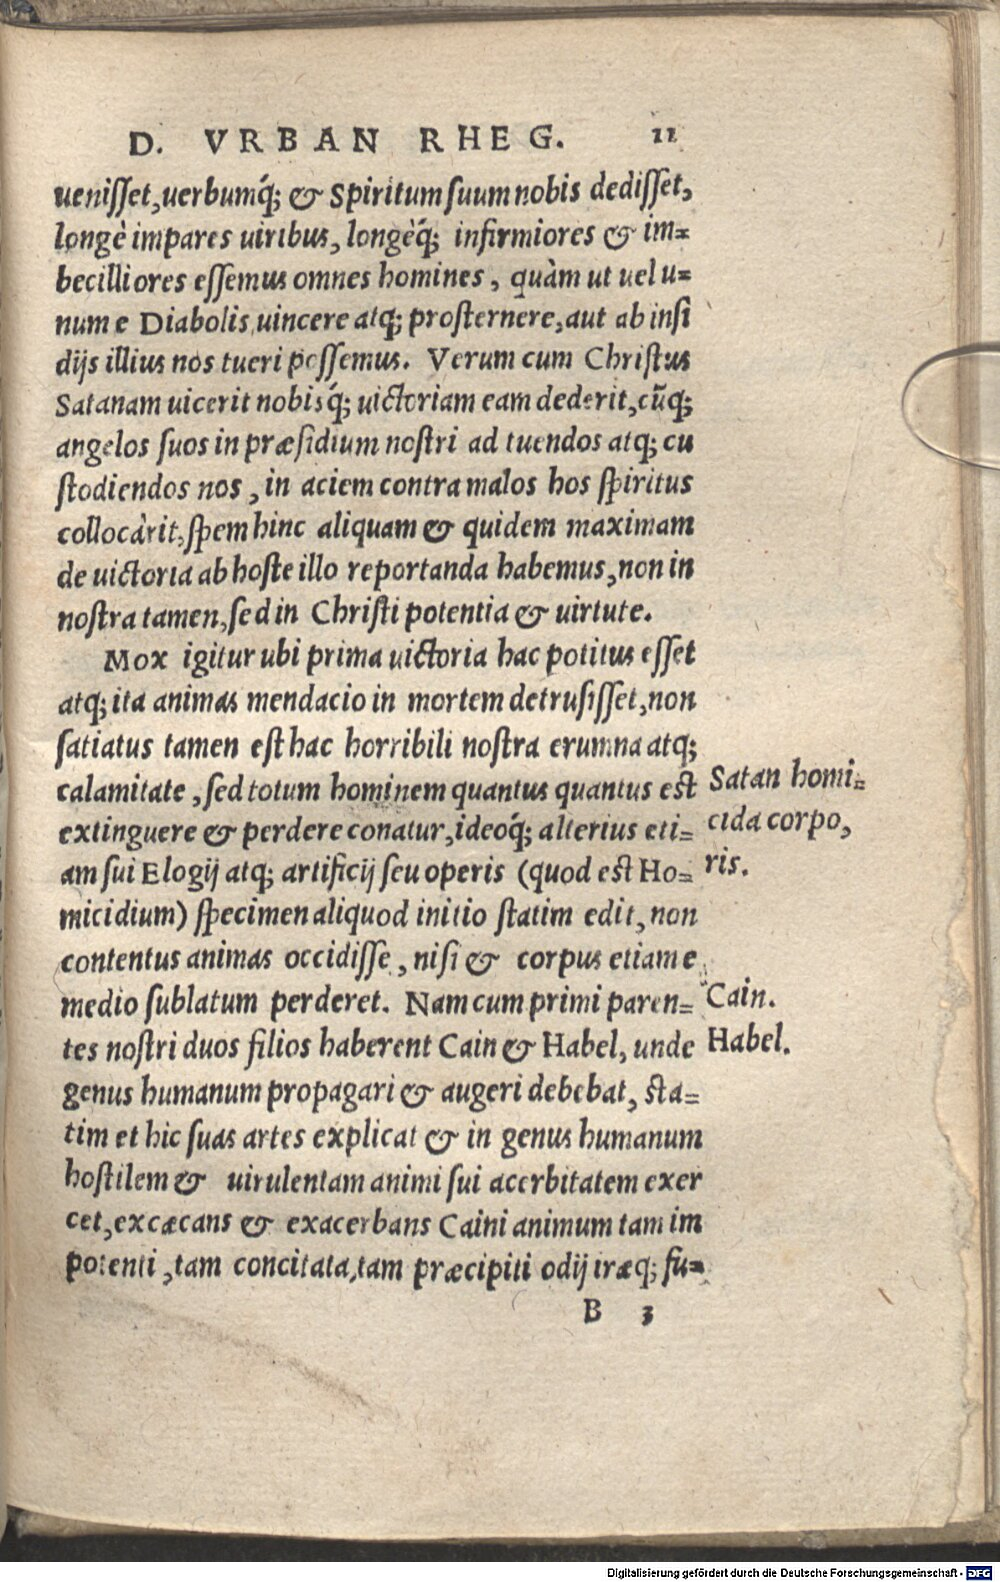 D. VRBAN RHEG. 11
ueniſſet, uerbumq́; & Spiritum ſuum nobis dediſſet,
longè impares uiribus, longèq́; infirmiores & im=
becilliores eſſemus omnes homines, quàm ut uel u=
num e Diabolis uincere atq; proſternere, aut ab inſi
dijs illius nos tueri poſſemus. Verum cum Chriſtus
Satanam uicerit nobisq́; uictoriam eam dederit, cũq;
angelos ſuos in præſidium noſtri ad tuendos atq; cu
ſtodiendos nos, in aciem contra malos hos ſpiritus
collocàrit, ſpem hinc aliquam & quidem maximam
de uictoria ab hoſte illo reportanda habemus, non in
noſtra tamen, ſed in Chriſti potentia & uirtute.
Mox igitur ubi prima uictoria hac potitus eſſet
atq; ita animas mendacio in mortem detruſiſſet, non
ſatiatus tamen eſt hac horribili noſtra erumna atq;
calamitate, ſed totum hominem quantus quantus eſt
extinguere & perdere conatur, ideoq́; alterius eti=
am ſui Elogij atq; artificij ſeu operis (quod eſt Ho=
micidium) ſpecimen aliquod initio ſtatim edit, non
contentus animas occidiſſe, niſi & corpus etiam e
medio ſublatum perderet. Nam cum primi paren=
tes noſtri duos filios haberent Cain & Habel, unde
genus humanum propagari & augeri debebat, ſta=
tim et hic ſuas artes explicat & in genus humanum
hoſtilem & uirulentam animi ſui acerbitatem exer
cet, excæcans & exacerbans Caini animum tam im
potenti, tam concitata, tam præcipiti odij iræq; fu=
B 3
Satan homi=
cida corpo,
ris.
Cain.
Habel.
Digitalisierung gefördert durch die Deutsche Forschungsgemeinschaft - DFG